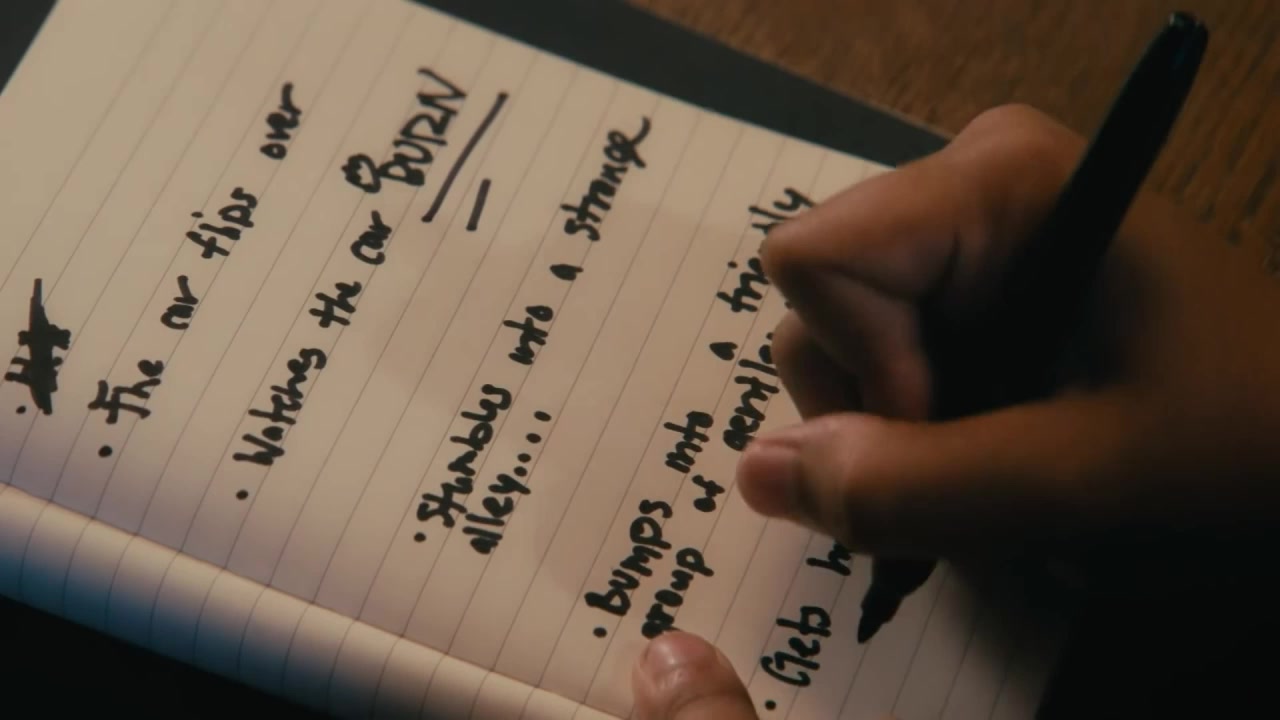 • The car flips over
• Watches the car BURN
• Stumbles into a strange
alley....
• Bumps into a friendly
group of
• Gets